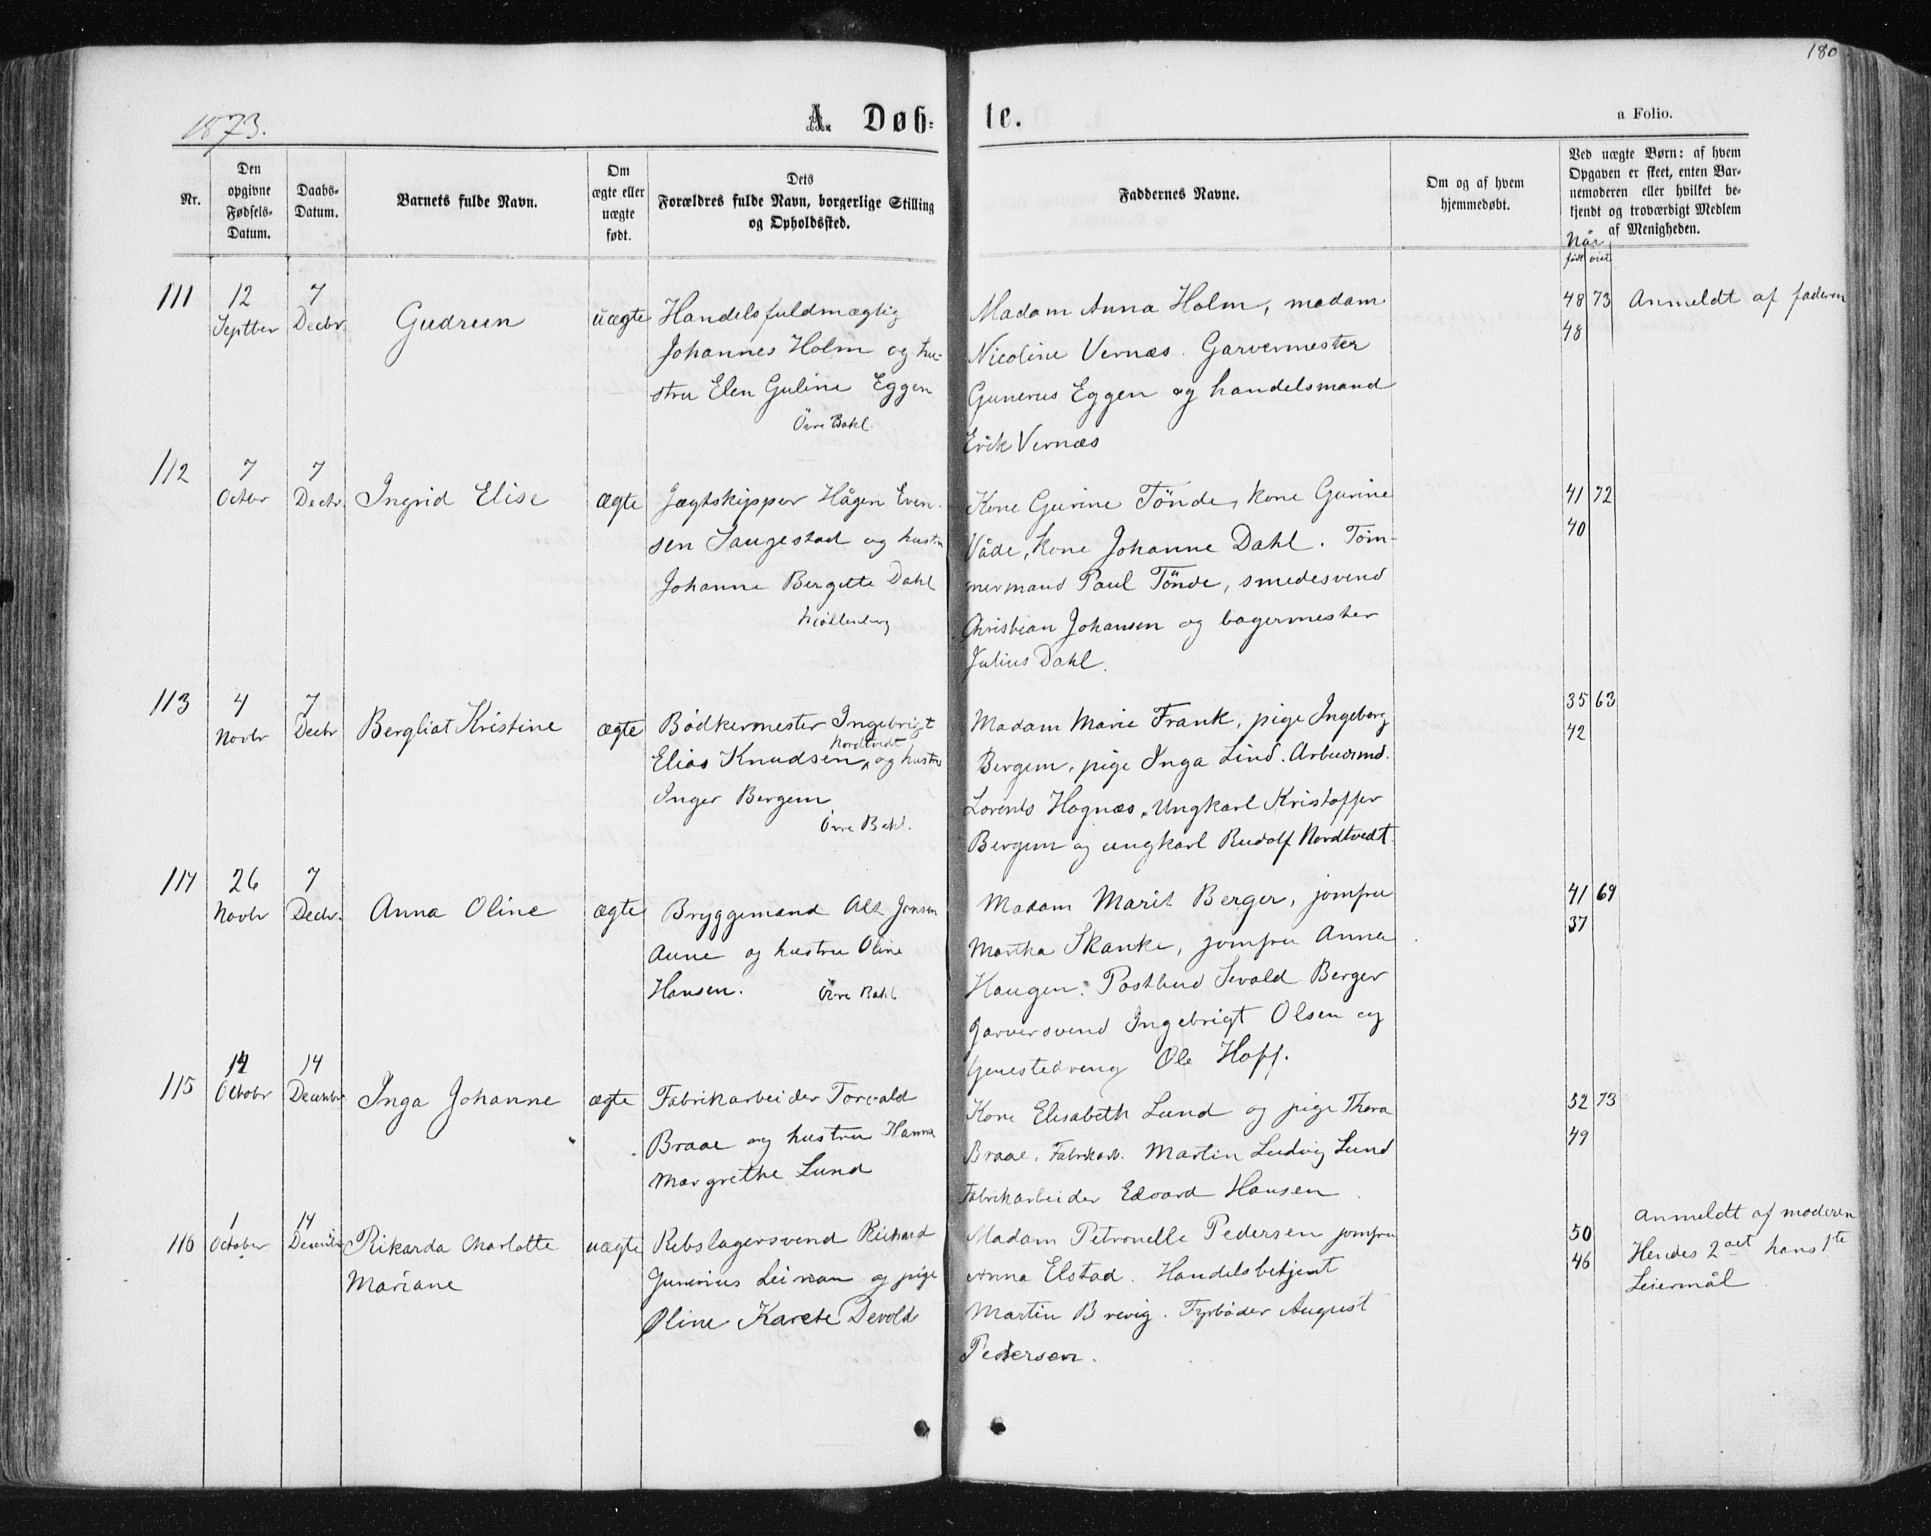 180
1873.
A. Døb-
te.
a Folio.
Nr.
Den
opgivne
Fødsels-
Datum.
Daabs-
Datum.
Barnets fulde Navn.
Om
ægte eller
uægte
født.
Dets
Forældres fulde Navn, borgerlige Stilling
og Opholdssted.
Faddernes Navne.
Om og af hvem
hjemmedøbt.
Ved uægte Børn: af hvem
Opgaven er skeet, enten Bar-
nemoderen eller hvilket be-
kjendt og troværdigt Medlem
af Menigheden.
Når
født viet
111
12
Septber
7
Decbr
Gudrun
uægte
Handelsfuldmægtig
Johannes Holm og hu-
stru Elen Guline Eggen
Övre Bakl.
Madam Anna Holm, madam
Nicoline Vernæs. Garvermester
Gunerus Eggen og handelsmand
Erik Vernæs
48 73
48
Anmeldt af faderen
112
7
Octbr
7
Decbr.
Ingrid Elise
ægte
Jægtskipper Hågen Even-
sen Saugestad og hustru
Johanne Bergitte Dahl
Möllenberg
Kone Gurine Tönde, kone Gurine
Våde, kone Johanne Dahl. Töm-
mermand Paul Tönde, smedesvend
Christian Johansen og bagermester
Julius Dahl.
41 72
40
113
4
Novbr
7
Decbr
Bergliat Kristine
ægte
Bödkermester Ingebrigt
Nordtvedt
Elias Knudsen og hustru
Inger Bergem
Övre Bakl.
Madam Marie Frank, pige Ingeborg
Bergem, pige Inga Lind. Arbeidsmd.
Lorents Hognæs, Ungkarl Kristoffer
Bergem og ungkarl Rudolf Nordtvedt.
35 63
42
114
26
Novbr
7
Decbr.
Anna Oline
ægte
Bryggemand Alt Jonsen
Aune og hustru Oline
Hansen.
Övre Bakl
Madam Marit Berger, jomfru
Martha Skanke, jomfru Anna
Haugen. Postbud Sevald Berger
Garversvend Ingebrigt Olsen og
Ole Hoff.
41 69
37
115
14
Octobr
14
Decembr
Inga Johanne
ægte
Fabrikarbeider Torvald
Braae og hustru Hanna
Margrethe Lund
Kone Elisabeth Lund og pige Thora
Braae. Fabrikarb. Martin Ludvig Lund
Fabrikarbeider Edvard Hansen
52 73
49
116
1
October
14
Decembr
Rikarda Charlotte
Mariane
uægte
Rebslagersvend Richard
Gunerius Leiman og pige
Oline Karete Devold
Madam Petronelle Pedersen jomfru
Anna Elstad. Handelsbetjent
Martin Brevig. Fyrböder August
Pedersen.
50
46
Anmeldt af moderen
Hendes 2det hans 1te
Leiermål